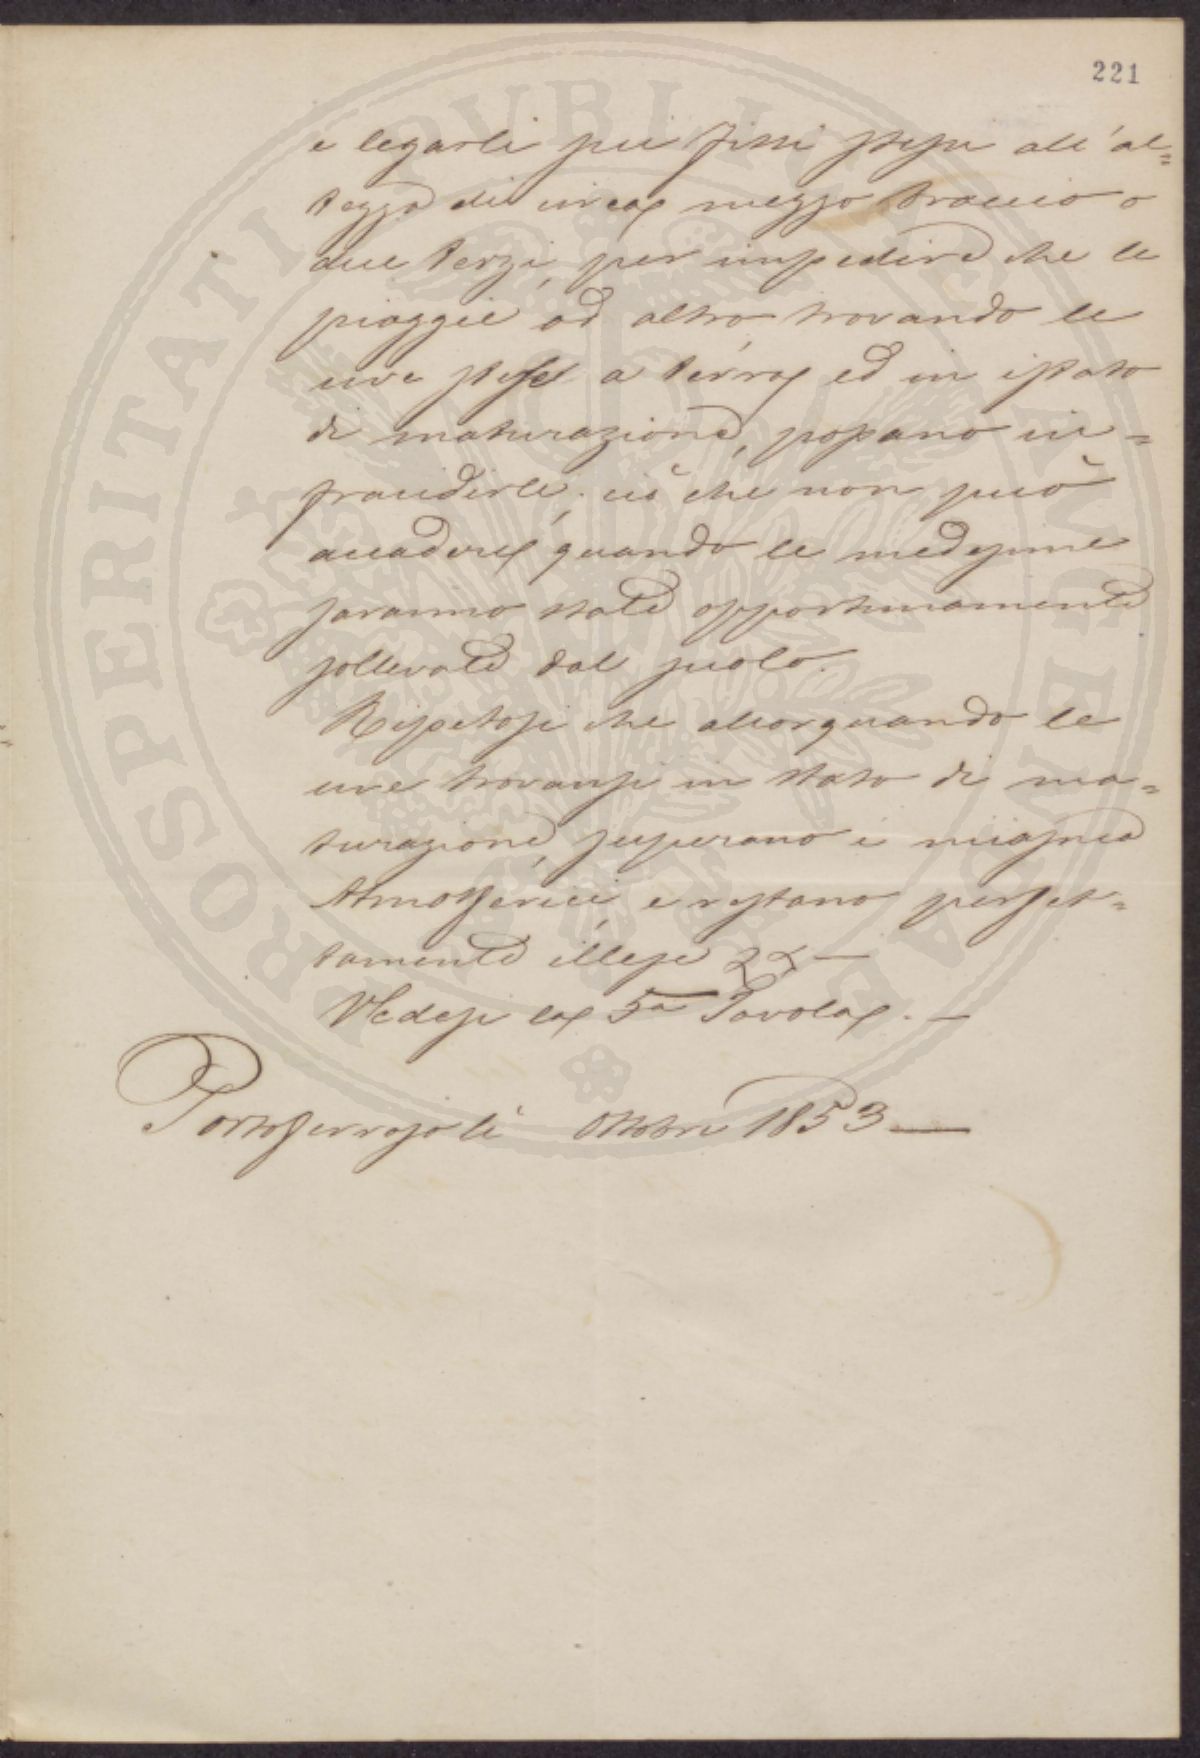 221
e legarli più fitti stessi all'al=
tezza di circa mezzo braccio o
due terzi, per impedire che le
pioggie od altro trovando le
uve stese a terra ed in istato
di maturazione, possano in=
fracidirle; ciò che non può
accadere, quando le medesime
saranno state opportunamente
sollevate dal suolo.
Ripetesi che allorquando le
uve trovansi in stato di ma=
turazione, superano i miasmi
Atmosferici, e restano perfet=
tamente illese
Vedesi la 5a Tavola. —
Portoferrajo li Ottobre 1853 —
PROSPERITATI PUBLICAE AUGENDAE